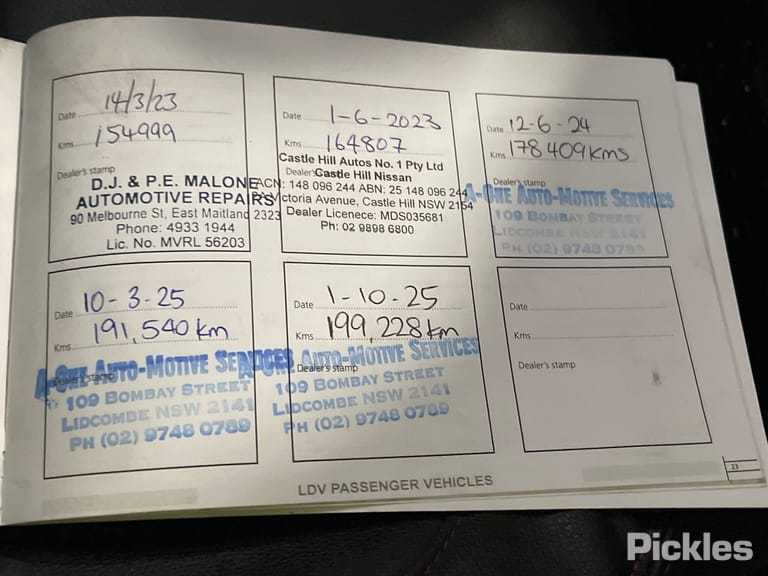 Date 14/3/23
Kms 154999
Dealer's stamp
D.J. & P.E. MALONE
AUTOMOTIVE REPAIRS
90 Melbourne St, East Maitland 2323
Phone: 4933 1944
Lic. No. MVRL 56203
Date 1-6-2023
Kms 164807
Castle Hill Autos No. 1 Pty Ltd
Dealer's Castle Hill Nissan
ACN: 148 096 244 ABN: 25 148 096 244
Victoria Avenue, Castle Hill NSW 2154
Dealer Licenece: MDS035681
Ph: 02 9898 6800
Date 12-6-24
Kms 178409kms
Dealer's stamp
A-ONE AUTO-MOTIVE SERVICES
109 BOMBAY STREET
LIDCOMBE NSW 2141
PH (02) 9748 0789
Date 10-3-25
Kms 191,540 km
Dealer's stamp
A-ONE AUTO-MOTIVE SERVICES
109 BOMBAY STREET
LIDCOMBE NSW 2141
PH (02) 9748 0789
Date 1-10-25
Kms 199,228km
Dealer's stamp
AUTO-MOTIVE SERVICES
109 BOMBAY STREET
LIDCOMBE NSW 2141
PH (02) 9748 0789
Date
Kms
Dealer's stamp
LDV PASSENGER VEHICLES
23
Pickles